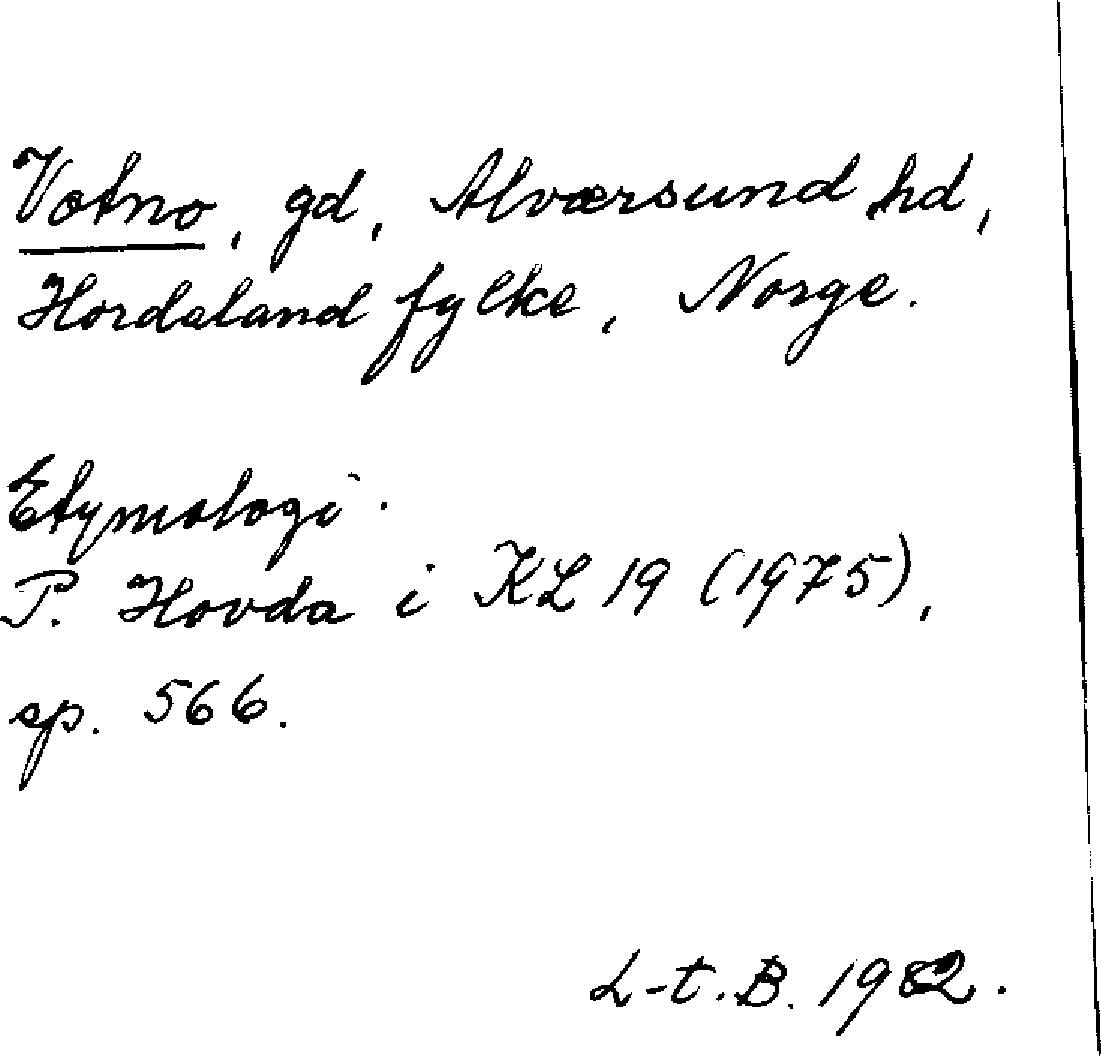 Votno, gd, Alværsund hd,
Hordaland fylke, Norge.
Etymologi.
P. Hovda i KL 19 (1975),
sp. 566.
L-t. B. 1982.